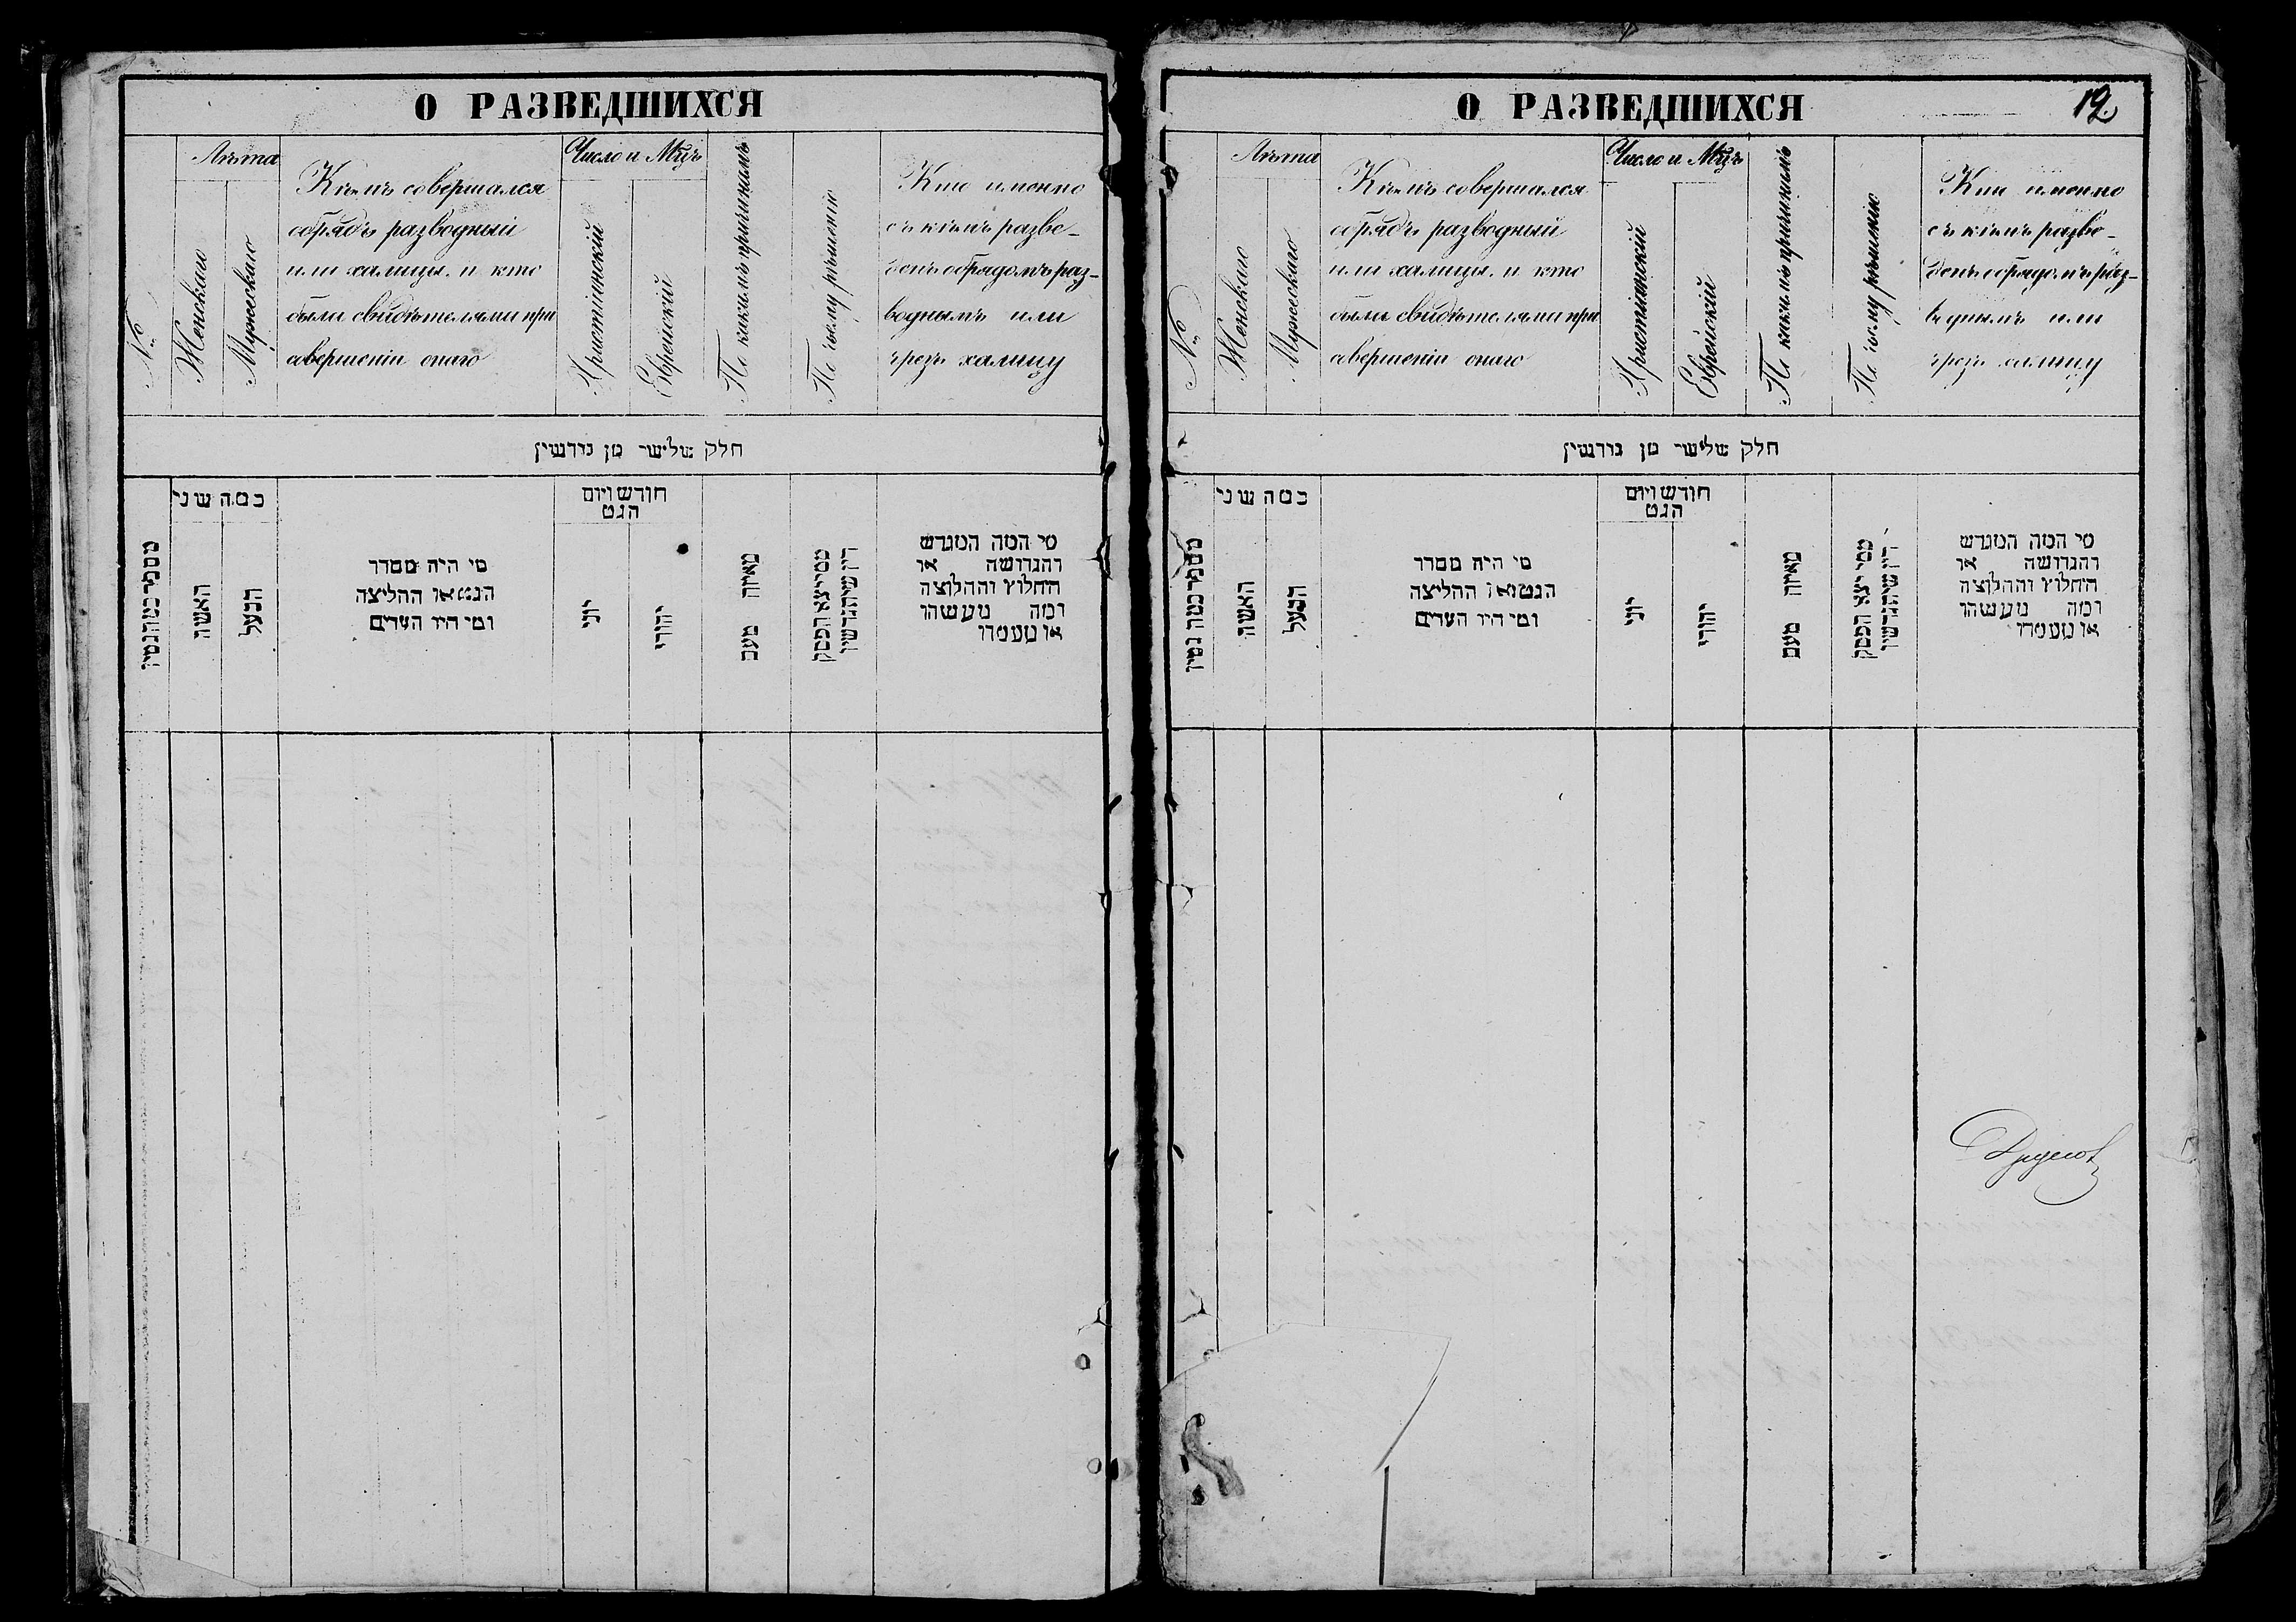 О РАЗВЕДШИХСЯ
№
Лѣта
Женскаго
Мужескаго
Кѣмъ совершался
обрядъ разводный
или халицы. и кто
были свидѣтелями при
совершеніи онаго
Число и Мцъ
Христіянскій
Еврейскій
По какимъ причинамъ
По чьему рѣшенію
Кто именно
съ кѣмъ разве-
денъ обрядомъ раз-
воднымъ или
чрезъ халицу
חלק שלישי מן גירושין
מספר כמה גטין
כמה שני
האשה
הבעל
מי היה מסדר
הגט או החליצה
ומי היו העדים
חודש ויום
הגט
יוני
יהודי
מאיזה טעם
ממי יצא הפסק
דין שיתגרשו
מי המה המגרש
והגרושה או
החלוץ והחלוצה
ומה מעשהו
או מעמדו
О РАЗВЕДШИХСЯ
12
№
Лѣта
Женскаго
Мужескаго
Кѣмъ совершался
обрядъ разводный
или халицы. и кто
были свидѣтелями при
совершеніи онаго
Число и Мцъ
Христіянскій
Еврейскій
По какимъ причинамъ
По чьему рѣшенію
Кто именно
съ кѣмъ разве-
денъ обрядомъ раз-
воднымъ или
чрезъ халицу
חלק שלישי מן גירושין
מספר כמה גטין
כמה שני
האשה
הבעל
מי היה מסדר
הגט או החליצה
ומי היו העדים
חודש ויום
הגט
יוני
יהודי
מאיזה טעם
ממי יצא הפסק
דין שיתגרשו
מי המה המגרש
והגרושה או
החלוץ והחלוצה
ומה מעשהו
או מעמדו